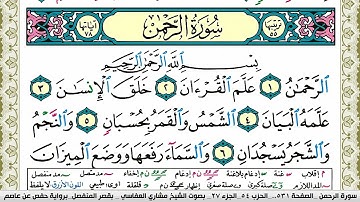 ترتيبها ٥٥
سُورَةُ الرَّحْمٰن
آياتها ٧٨
بِسْمِ اللَّهِ الرَّحْمَٰنِ الرَّحِيمِ
الرَّحْمَٰنُ ١ عَلَّمَ الْقُرْءَانَ ٢ خَلَقَ الْإِنسَٰنَ ٣
عَلَّمَهُ الْبَيَانَ ٤ الشَّمْسُ وَالْقَمَرُ بِحُسْبَانٍ ٥ وَالنَّجْمُ
وَالشَّجَرُ يَسْجُدَانِ ٦ وَالسَّمَاءَ رَفَعَهَا وَوَضَعَ الْمِيزَانَ
سورة الرحمن . الصفحة ٥٣١ . الحزب ٥٤ . الجزء ٢٧ . بصوت الشيخ مشاري العفاسي . بقصر المنفصل . برواية حفص عن عاصم